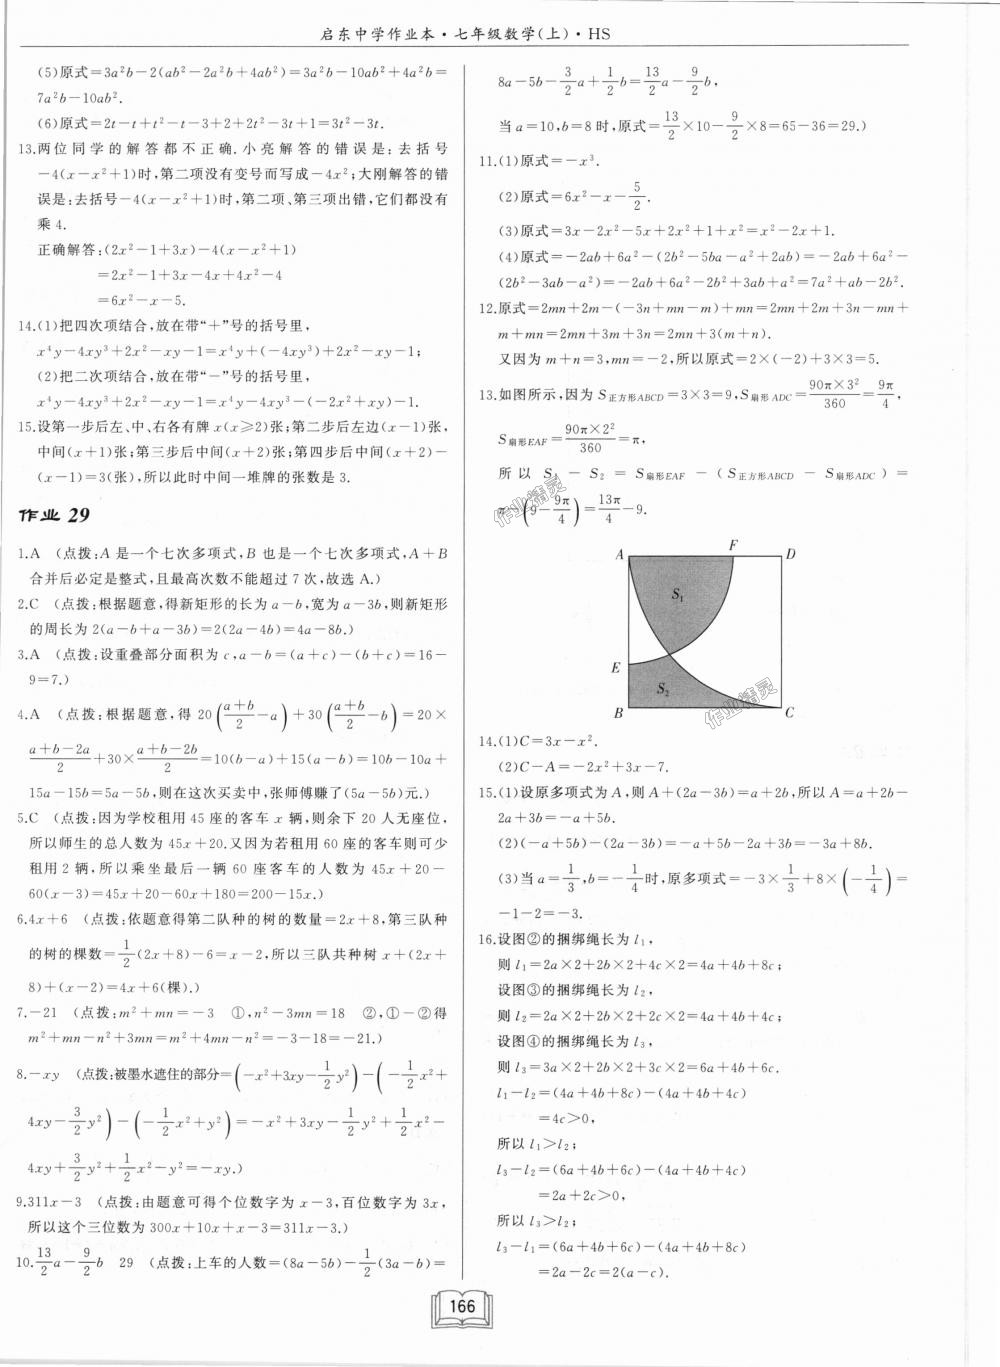 启东中学作业本·七年级数学(上)·HS
(5)原式=3a²b-2(ab²-2a²b+4ab²)=3a²b-10ab²+4a²b=
7a²b-10ab².
(6)原式=2t-t+t²-t-3+2+2t²-3t+1=3t²-3t.
13.两位同学的解答都不正确.小亮解答的错误是:去括号
-4(x-x²+1)时,第二项没有变号而写成-4x²;大刚解答的错
误是:去括号-4(x-x²+1)时,第二项、第三项出错,它们都没有
乘4.
正确解答:(2x²-1+3x)-4(x-x²+1)
=2x²-1+3x-4x+4x²-4
=6x²-x-5.
14.(1)把四次项结合,放在带“+”号的括号里,
x⁴y-4xy³+2x²-xy-1=x⁴y+(-4xy³)+2x²-xy-1;
(2)把二次项结合,放在带“-”号的括号里,
x⁴y-4xy³+2x²-xy-1=x⁴y-4xy³-(-2x²+xy)-1.
15.设第一步后左、中、右各有牌x(x≥2)张;第二步后左边(x-1)张,
中间(x+1)张;第三步后中间(x+2)张;第四步后中间(x+2)-
(x-1)=3(张),所以此时中间一堆牌的张数是3.
作业 29
1.A (点拨:A是一个七次多项式,B也是一个七次多项式,A+B
合并后必定是整式,且最高次数不能超过7次,故选A.)
2.C (点拨:根据题意,得新矩形的长为a-b,宽为a-3b,则新矩形
的周长为2(a-b+a-3b)=2(2a-4b)=4a-8b.)
3.A (点拨:设重叠部分面积为c,a-b=(a+c)-(b+c)=16-
9=7.)
4.A (点拨:根据题意,得20((a+b)/2-a)+30((a+b)/2-b)=20×
(a+b-2a)/2+30×(a+b-2b)/2=10(b-a)+15(a-b)=10b-10a+
15a-15b=5a-5b,则在这次买卖中,张师傅赚了(5a-5b)元.)
5.C (点拨:因为学校租用45座的客车x辆,则余下20人无座位,
所以师生的总人数为45x+20.又因为若租用60座的客车则可少
租用2辆,所以乘坐最后一辆60座客车的人数为45x+20-
60(x-3)=45x+20-60x+180=200-15x.)
6.4x+6 (点拨:依题意得第二队种的树的数量=2x+8,第三队种
的树的棵数=1/2(2x+8)-6=x-2,所以三队共种树x+(2x+
8)+(x-2)=4x+6(棵).)
7.-21 (点拨:m²+mn=-3 ①,n²-3mn=18 ②,①-②得
m²+mn-n²+3mn=m²+4mn-n²=-3-18=-21.)
8.-xy (点拨:被墨水遮住的部分=(-x²+3xy-1/2y²)-(-1/2x²+
4xy-3/2y²)-(-1/2x²+y²)=-x²+3xy-1/2y²+1/2x²-
4xy+3/2y²+1/2x²-y²=-xy.)
9.311x-3 (点拨:由题意可得个位数字为x-3,百位数字为3x,
所以这个三位数为300x+10x+x-3=311x-3.)
10.13/2a-9/2b 29 (点拨:上车的人数=(8a-5b)-1/2(3a-b)=
8a-5b-3/2a+1/2b=13/2a-9/2b,
当a=10,b=8时,原式=13/2×10-9/2×8=65-36=29.)
11.(1)原式=-x³.
(2)原式=6x²-x-5/2.
(3)原式=3x-2x²-5x+2x²+1+x²=x²-2x+1.
(4)原式=-2ab+6a²-(2b²-5ba-a²+2ab)=-2ab+6a²-
(2b²-3ab-a²)=-2ab+6a²-2b²+3ab+a²=7a²+ab-2b².
12.原式=2mn+2m-(-3n+mn-m)+mn=2mn+2m+3n-mn+
m+mn=2mn+3m+3n=2mn+3(m+n).
又因为m+n=3,mn=-2,所以原式=2×(-2)+3×3=5.
13.如图所示,因为S正方形ABCD=3×3=9,S扇形ADC=90π×3²/360=9π/4,
S扇形EAF=90π×2²/360=π,
所以S₁-S₂=S扇形EAF-(S正方形ABCD-S扇形ADC)=
π-(9-9π/4)=13π/4-9.
A F D
S₁
E
S₂
B C
14.(1)C=3x-x².
(2)C-A=-2x²+3x-7.
15.(1)设原多项式为A,则A+(2a-3b)=a+2b,所以A=a+2b-
2a+3b=-a+5b.
(2)(-a+5b)-(2a-3b)=-a+5b-2a+3b=-3a+8b.
(3)当a=1/3,b=-1/4时,原多项式=-3×1/3+8×(-1/4)=
-1-2=-3.
16.设图②的捆绑绳长为l₁,
则l₁=2a×2+2b×2+4c×2=4a+4b+8c;
设图③的捆绑绳长为l₂,
则l₂=2a×2+2b×2+2c×2=4a+4b+4c;
设图④的捆绑绳长为l₃,
则l₃=3a×2+2b×2+3c×2=6a+4b+6c.
l₁-l₂=(4a+4b+8c)-(4a+4b+4c)
=4c>0,
所以l₁>l₂;
l₃-l₂=(6a+4b+6c)-(4a+4b+4c)
=2a+2c>0,
所以l₃>l₂;
l₃-l₁=(6a+4b+6c)-(4a+4b+8c)
=2a-2c=2(a-c).
166
作业精灵
作业精灵